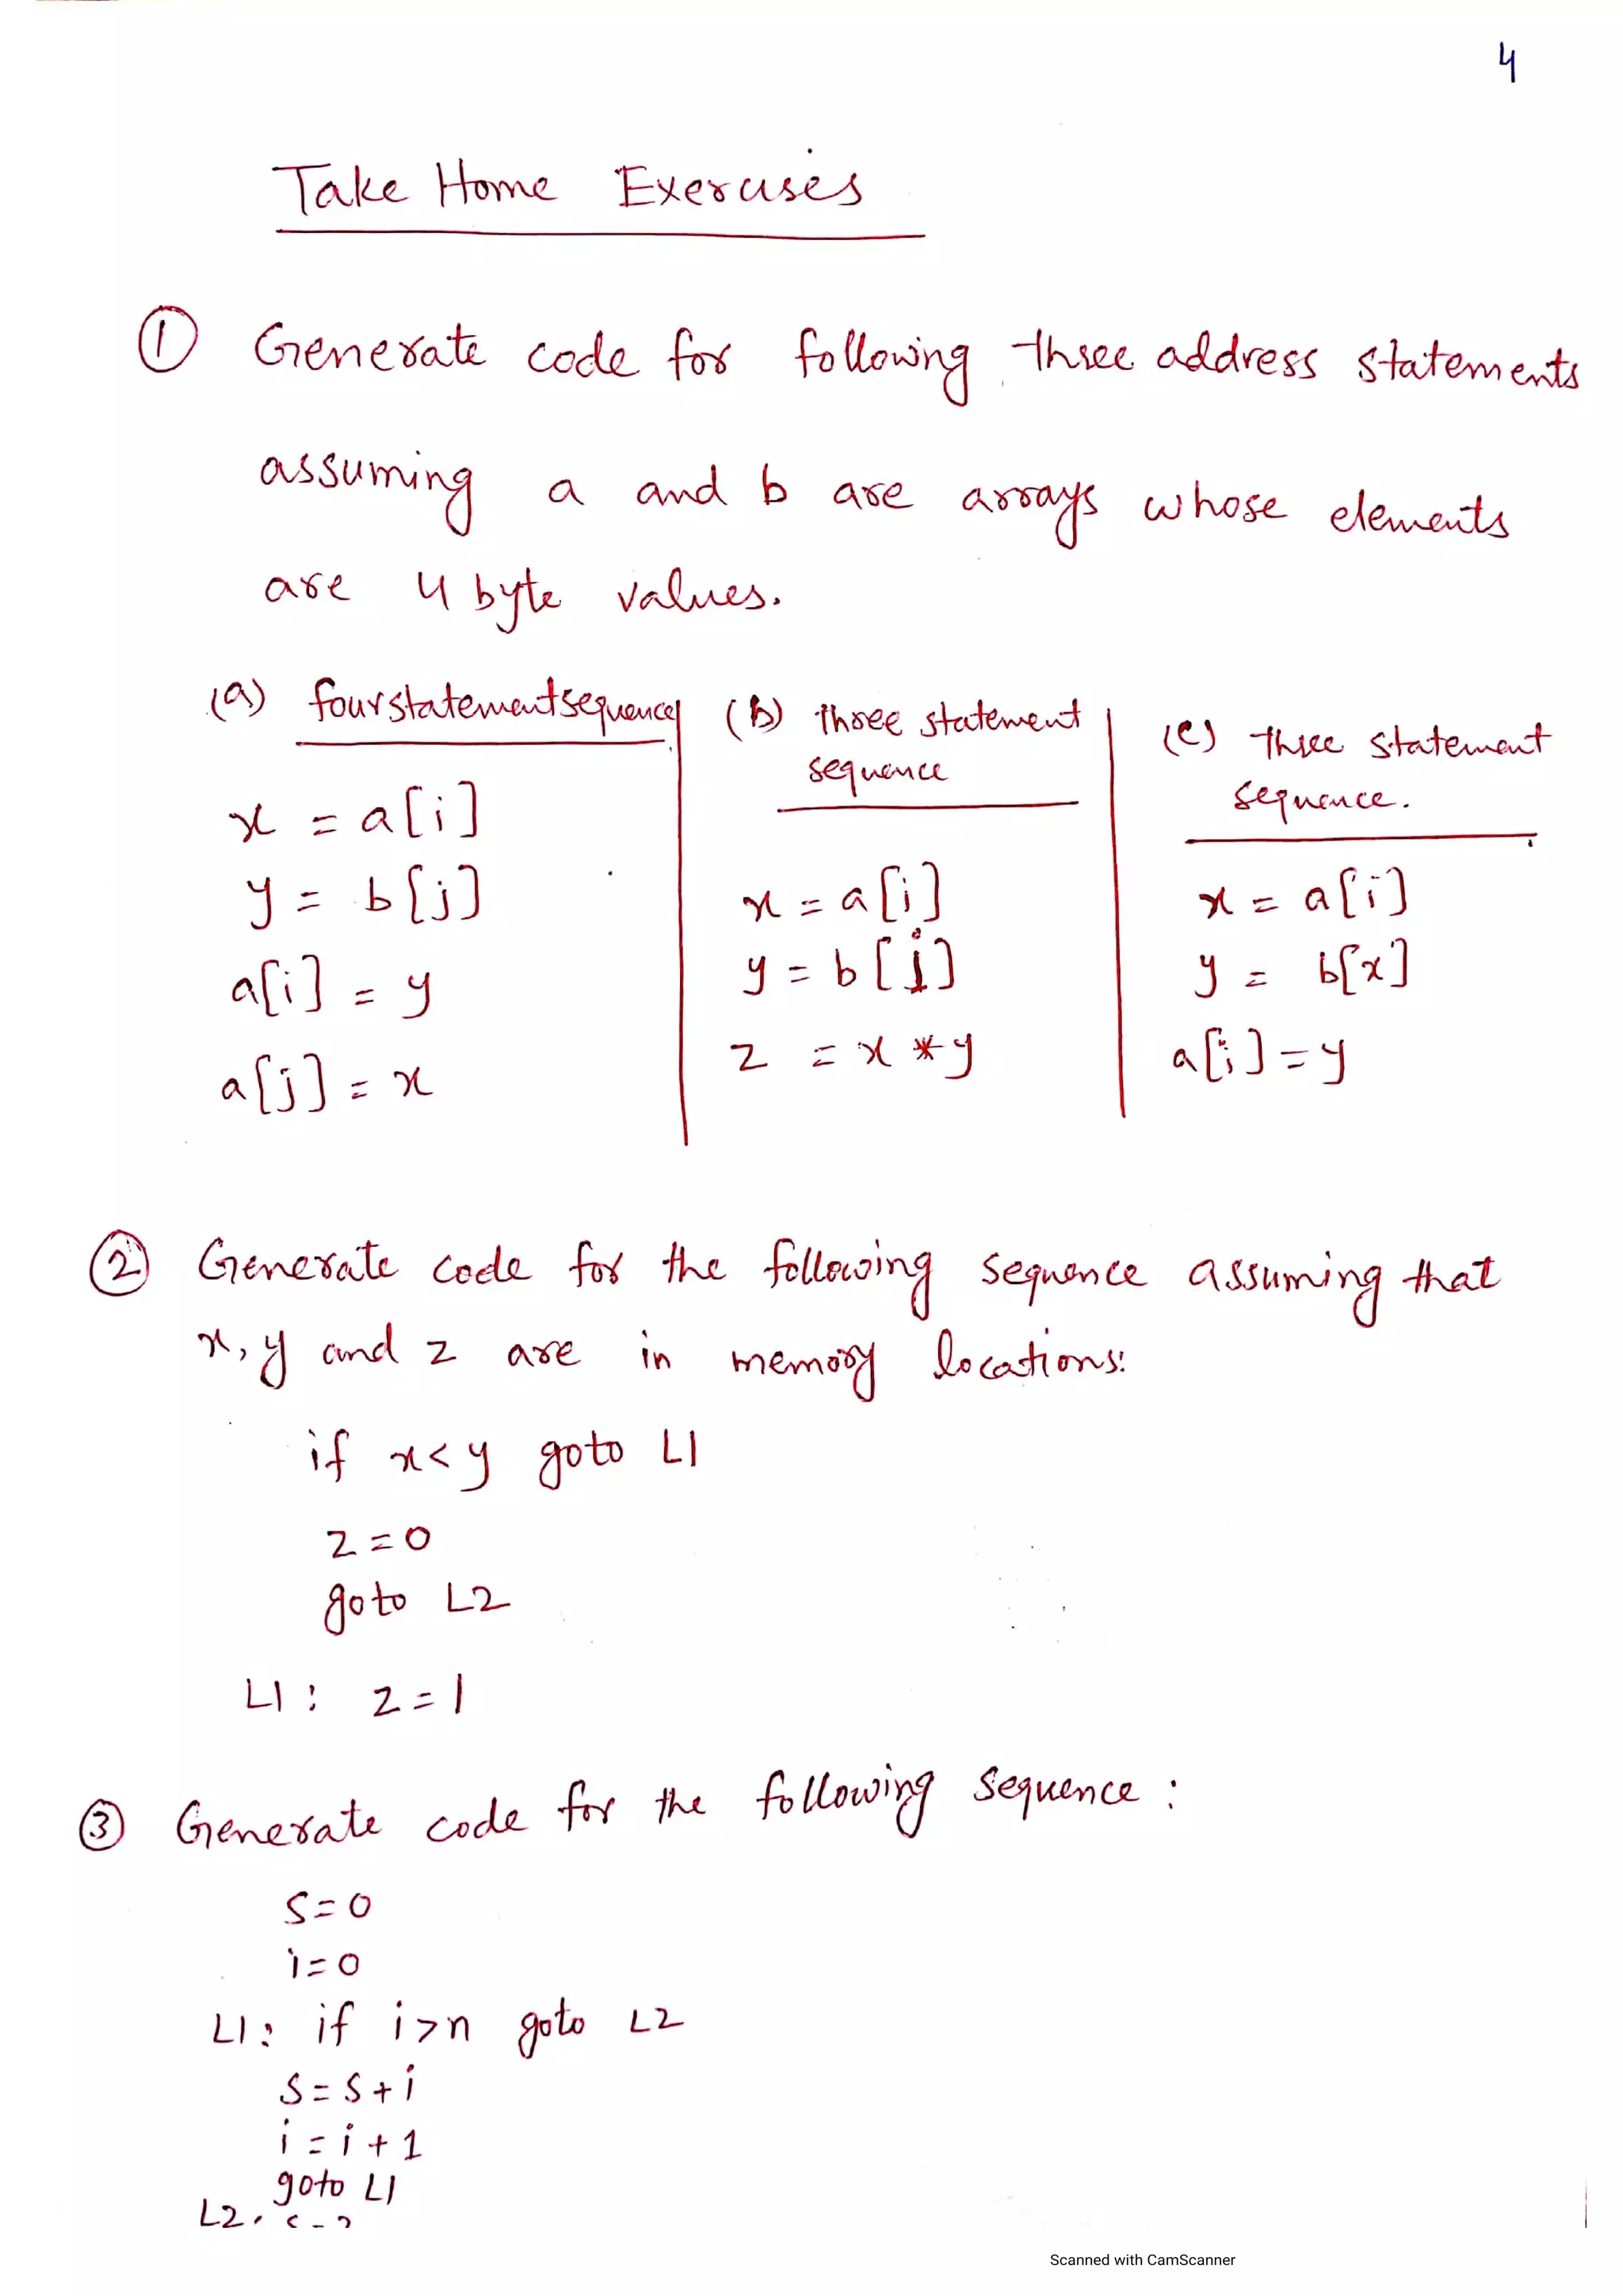 4
Take Home Exercises
① Generate code for following three address statements
assuming a and b are arrays whose elements
are 4 byte values.
(a) four statement sequence
x = a[i]
y = b[j]
a[i] = y
a[j] = x
(b) three statement
sequence
x = a[i]
y = b[j]
z = x * y
(c) three statement
sequence.
x = a[i]
y = b[x]
a[i] = y
② Generate code for the following sequence assuming that
x, y and z are in memory locations:
if x < y goto L1
z = 0
goto L2
L1 : z = 1
③ Generate code for the following sequence :
S = 0
i = 0
L1 : if i > n goto L2
S = S + i
i = i + 1
goto L1
L2
Scanned with CamScanner